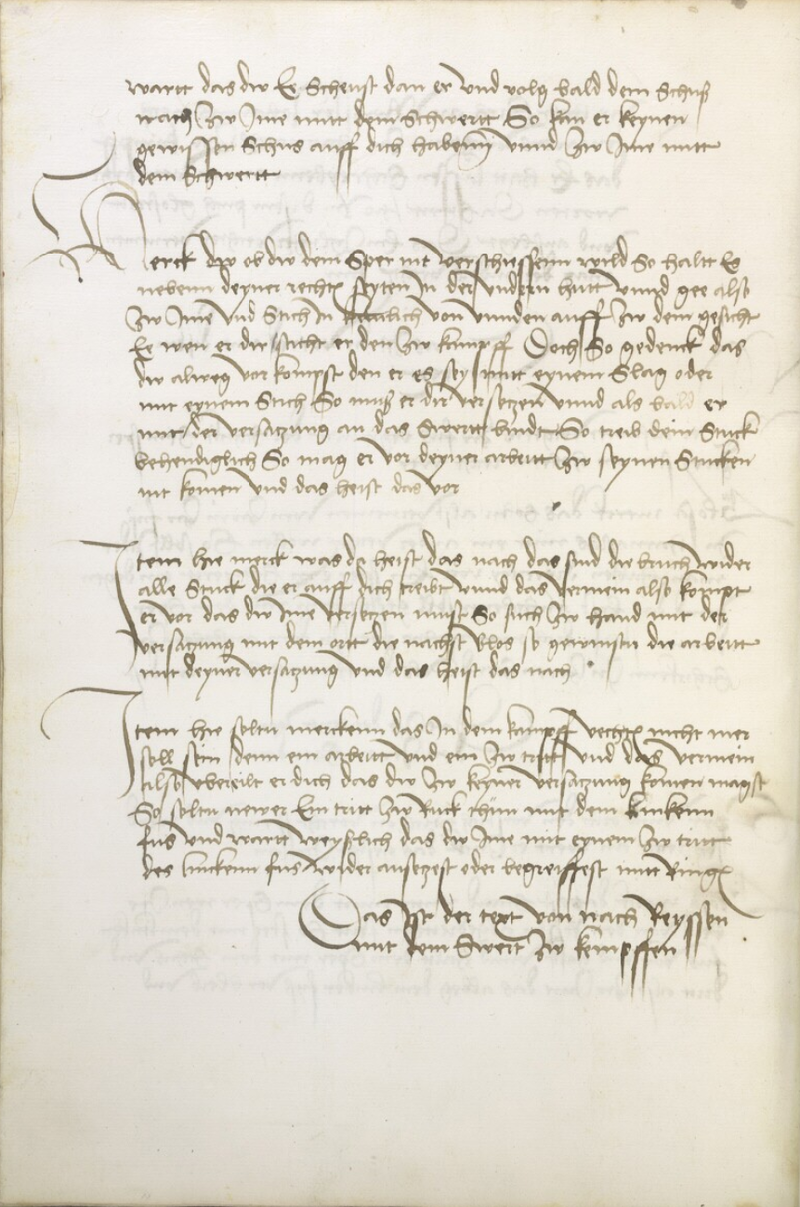 wartt das dw Ee Scheust dan er vnd volg bald dem Schuß
nach Zw Ime mitt dem Schwertt So kan er keynen
gewissen Schus auff dich habenn vnnd Zw Ime mitt
dem Schwertt
Merck dw ob dw dem Sper nit verschiessenn wild So haltt Es
nebenn deyner recht seyten In der vndern hutt vnnd gee also
Zw Ime vnd Stich In von vnnden auff Zw dem gesicht
Ee wen er dir sticht er den Zw kampff Doch So gedenck das
dw alweg vor kompst den er es sey mitt eynem Slag oder
mit eynem Stich So muß er dir versetzen vnnd als bald er
mit der versatzung an das Swertt bindt So treib dein Stuck
behendiglich So mag er vor deyner arbeitt Zw seynen Stucken
nit komen vnd das heist das vor
Item hie merck was do heist das nach das sind die bruch wider
alle Stuck die er auff dich treibt vnnd das vermein also kompt
er vor das dw Ime versetzen must So such Zw hand mit der
versatzung mit dem ortt die nachst blos so gewinstu die arbeitt
mit deyner versatzung vnd das heist das nach
Item hie soltu merckenn das In dem kampff vecht nicht mer
soll sein denn ein arbeitt vnd ein Zw tritt vnd das vermein
also vbereilt er dich das dw Zw keyner versatzung komen magst
So soltu newer Ein tritt Zw Ruck thun mit dem linckenn
fus vnd wartt weyßlich das dw Ime mit eynem Zw tritt
des linckenn fus wider ansetzest oder begreiffest mitt Ring
Das Ist der text von nach Reyssen
mit dem Swert Zw kempffen